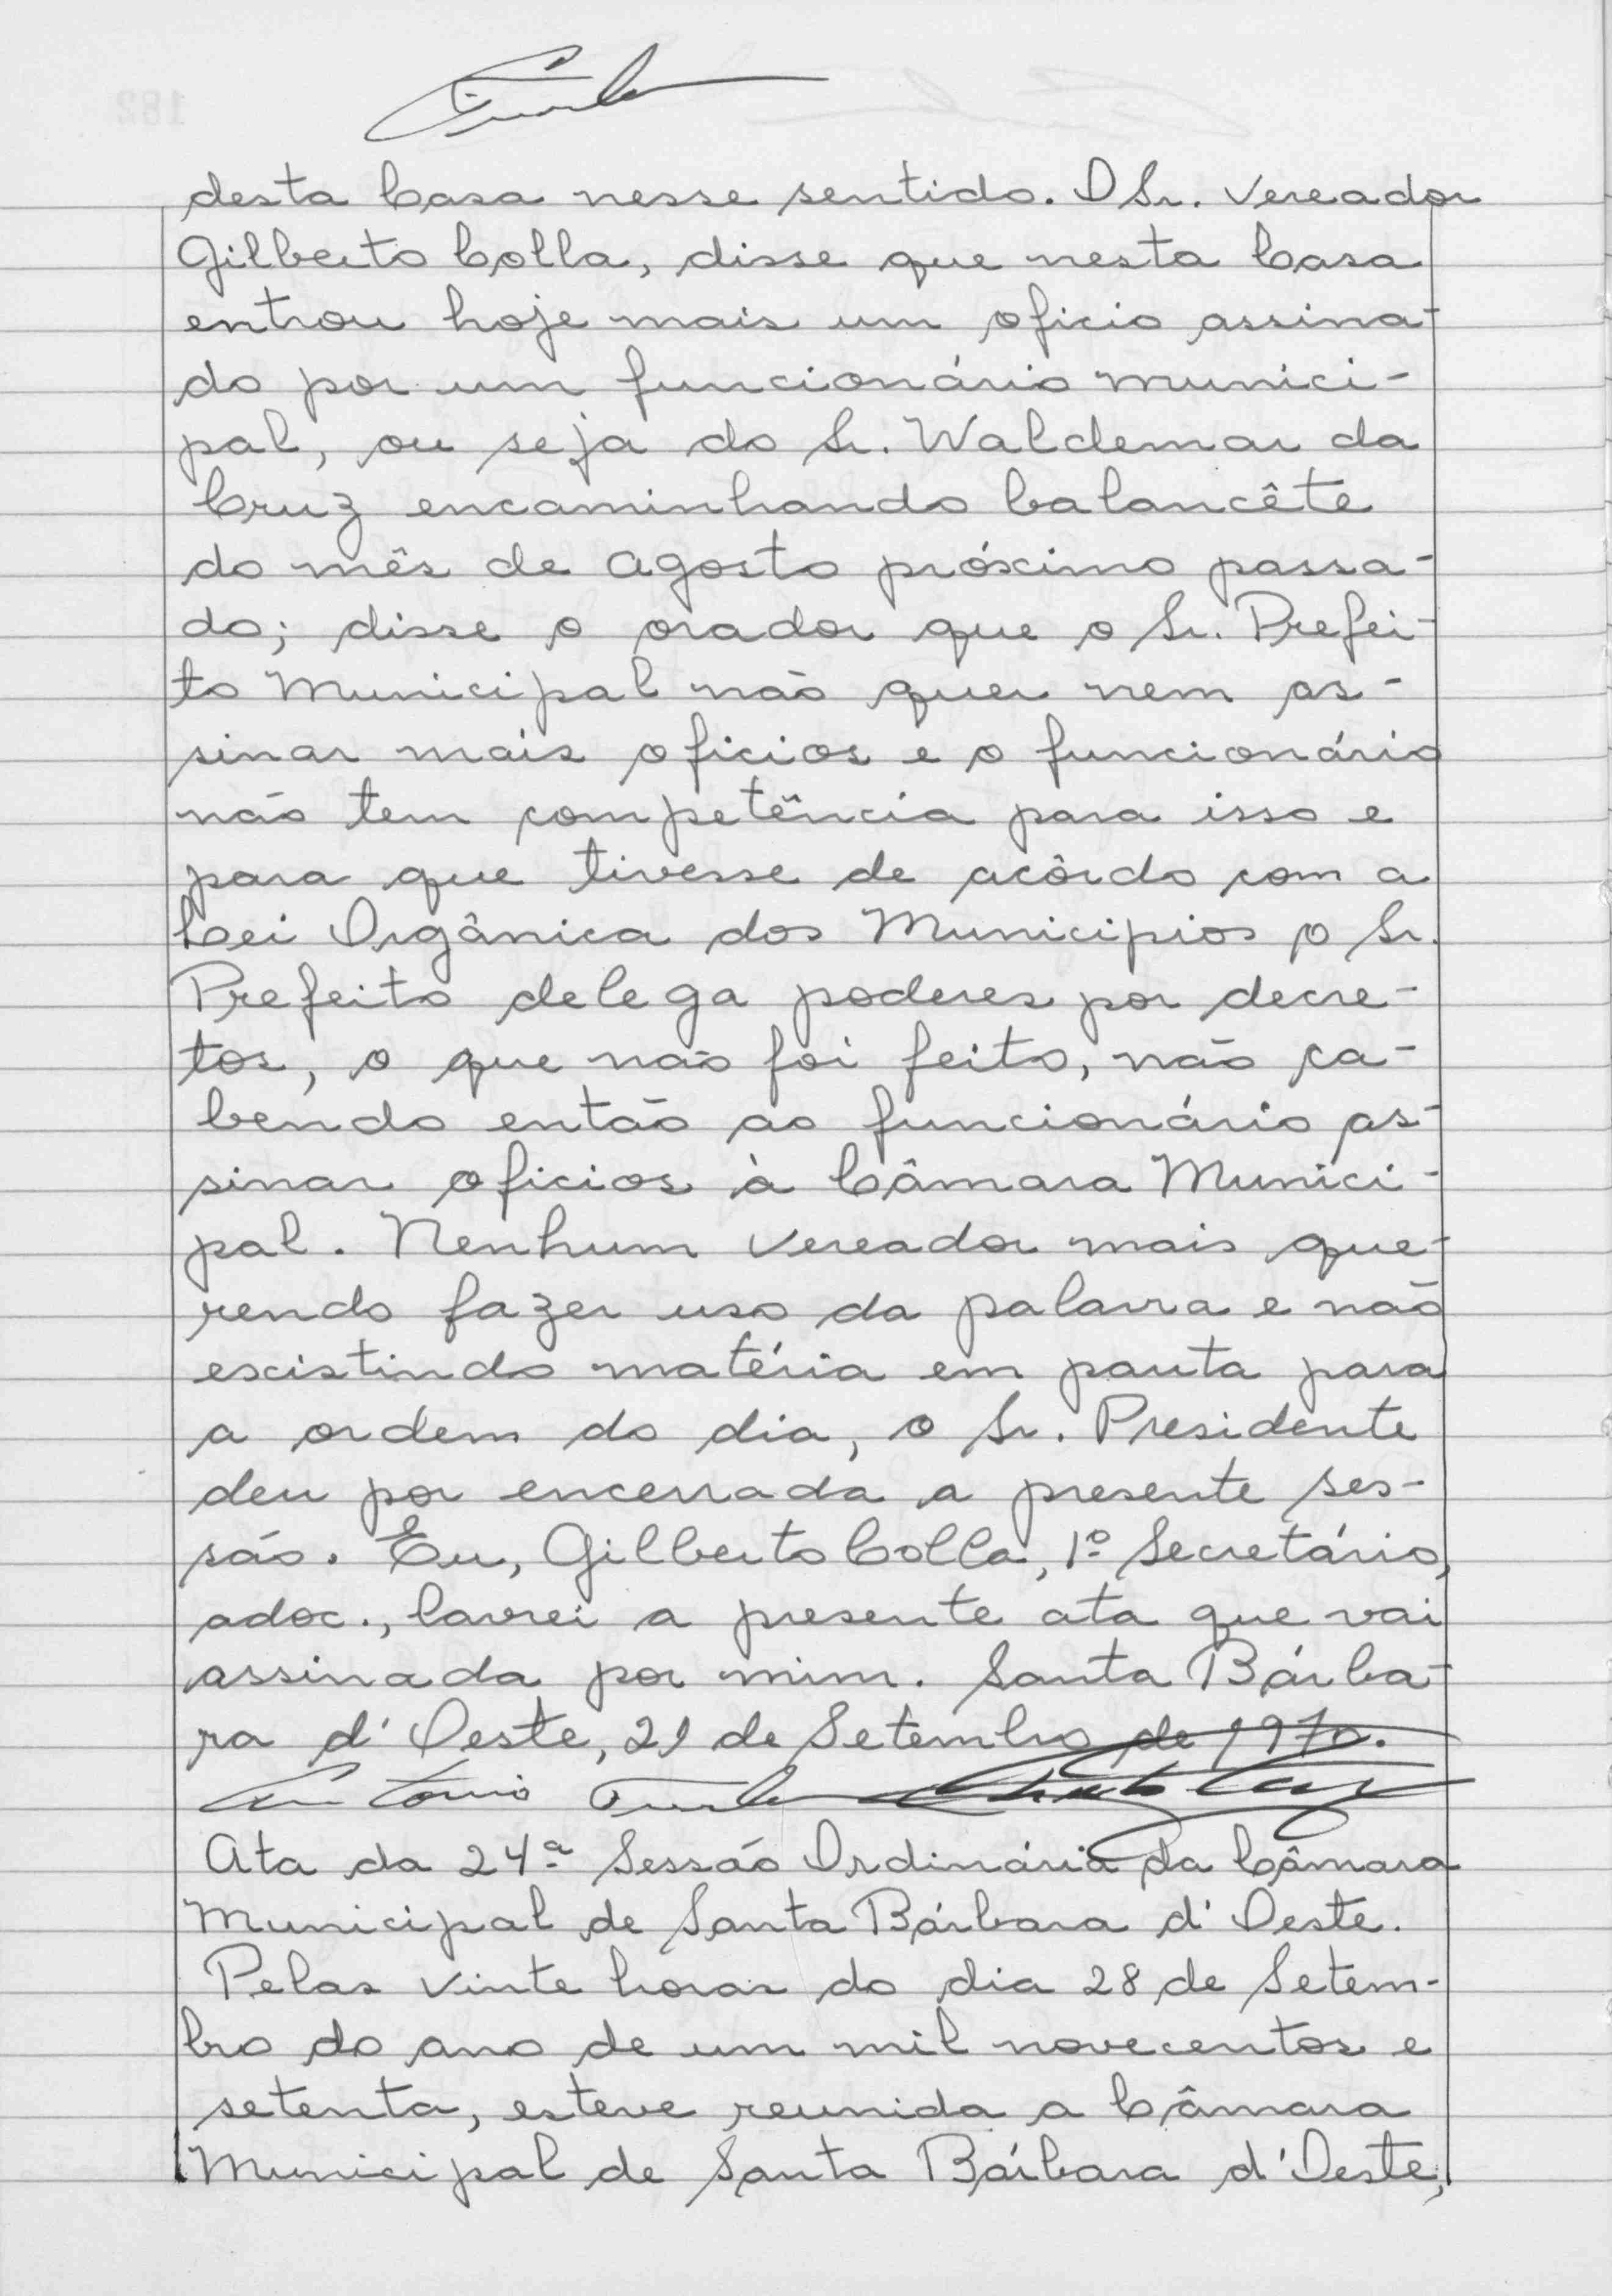 desta Casa nesse sentido. O Sr. Vereador
Gilberto Colla, disse que nesta Casa
entrou hoje mais um oficio assina-
do por um funcionário munici-
pal, ou seja do Sr. Waldemar da
Cruz encaminhando balancête
do mês de Agosto próximo passa-
do; disse o orador que o Sr. Prefei-
to Municipal não quer nem as-
sinar mais oficios e o funcionário
não tem competência para isso e
para que tivesse de acôrdo com a
Lei Orgânica dos Municipios o Sr.
Prefeito delega poderes por decre-
tos, o que não foi feito, não ca-
bendo então ao funcionário as-
sinar oficios à Câmara Munici-
pal. Nenhum Vereador mais que-
rendo fazer uso da palavra e não
existindo matéria em pauta para
a ordem do dia, o Sr. Presidente
deu por encerrada a presente ses-
são. Eu, Gilberto Colla, 1º Secretário,
adoc., lavrei a presente ata que vai
assinada por mim. Santa Bárba-
ra d'Oeste, 21 de Setembro de 1970.
Antonio
Ata da 24ª Sessão Ordinária da Câmara
Municipal de Santa Bárbara d'Oeste.
Pelas vinte horas do dia 28 de Setem-
bro do ano de um mil novecentos e
setenta, esteve reunida a Câmara
Municipal de Santa Bárbara d'Oeste,